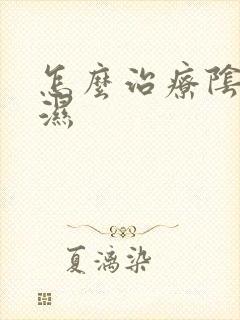 怎麼治療陰
濕
夏漓染